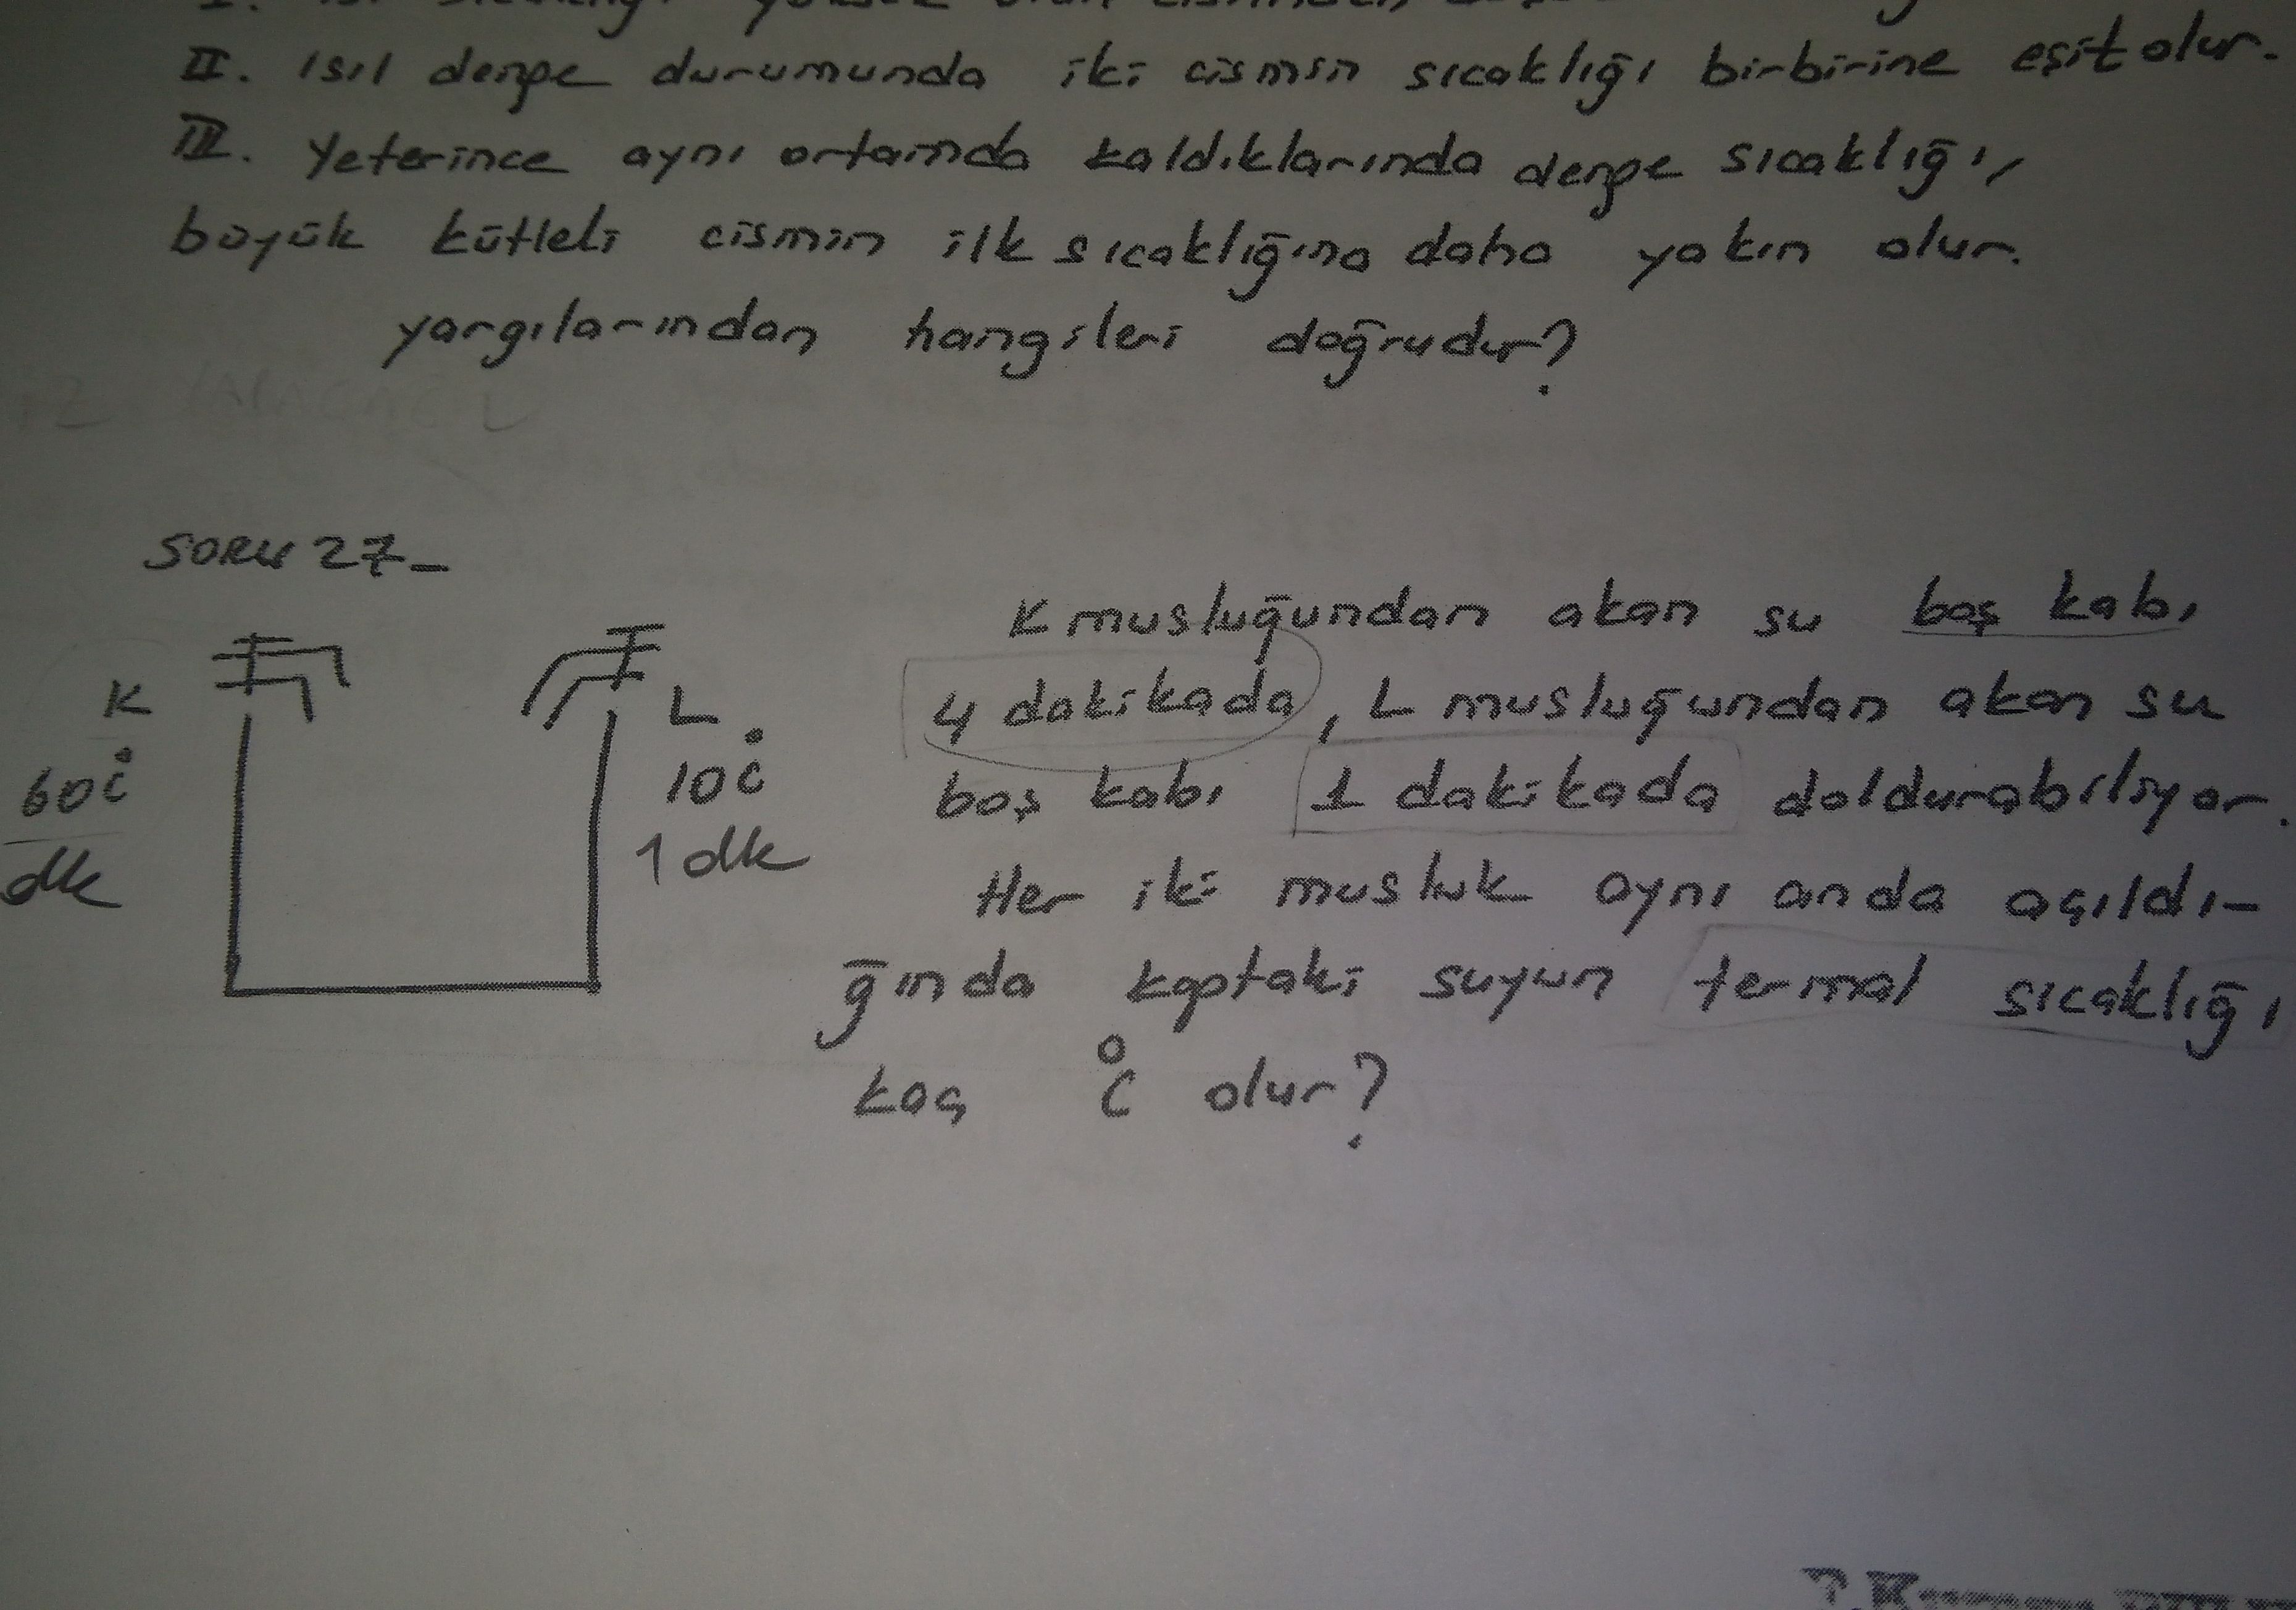 II. Isıl denge durumunda iki cismin sıcaklığı birbirine eşit olur.
III. Yeterince aynı ortamda kaldıklarında denge sıcaklığı,
büyük kütleli cismin ilk sıcaklığına daha yakın olur.
yargılarından hangileri doğrudur?
SORU 27-
K musluğundan akan su boş kabı
4 dakikada, L musluğundan akan su
boş kabı 1 dakikada doldurabiliyor.
Her iki musluk aynı anda açıldı-
ğında kaptaki suyun termal sıcaklığı
kaç °C olur?
K
60°C
dk
L
10°C
1 dk